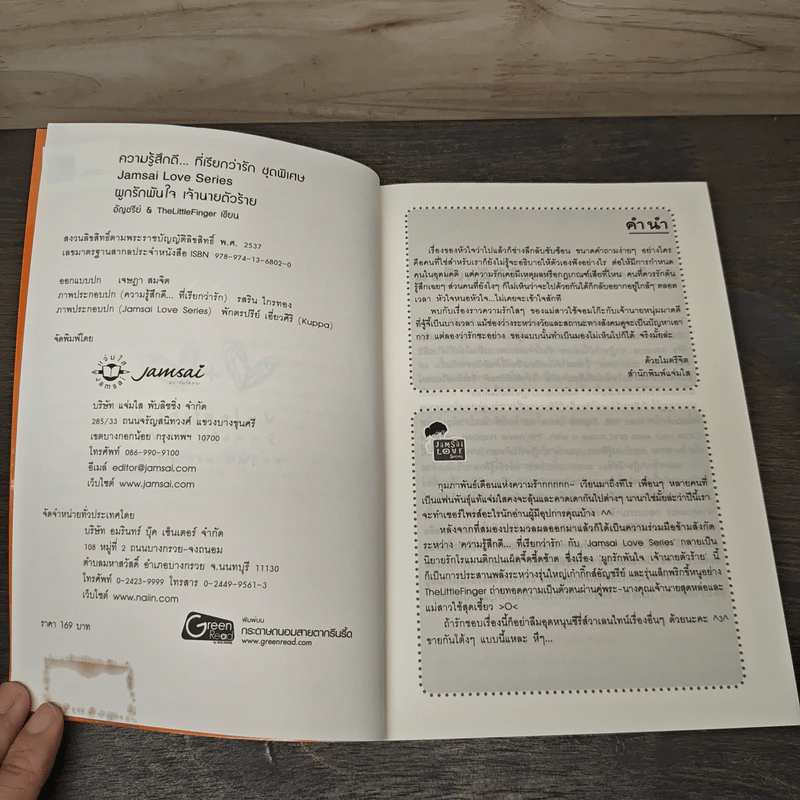 ความรู้สึกดี... ที่เรียกว่ารัก ชุดพิเศษ
Jamsai Love Series
ผูกรักพันใจ เจ้านายตัวร้าย
อัญชรีย์ & TheLittleFinger เขียน
สงวนลิขสิทธิ์ตามพระราชบัญญัติลิขสิทธิ์ พ.ศ. 2537
เลขมาตรฐานสากลประจำหนังสือ ISBN 978-974-13-6802-0
ออกแบบปก เจษฎา สมจิต
ภาพประกอบปก (ความรู้สึกดี... ที่เรียกว่ารัก) รสริน ไกรทอง
ภาพประกอบปก (Jamsai Love Series) พักตรปรีย์ เอี่ยวศิริ (Kuppa)
จัดพิมพ์โดย
แจ่มใส
Jamsai
Jamsai
บริษัท แจ่มใส พับลิชชิ่ง จำกัด
285/33 ถนนจรัญสนิทวงศ์ แขวงบางขุนศรี
เขตบางกอกน้อย กรุงเทพฯ 10700
โทรศัพท์ 086-990-9100
อีเมล์ editor@jamsai.com
เว็บไซต์ www.jamsai.com
จัดจำหน่ายทั่วประเทศโดย
บริษัท อมรินทร์ บุ๊ค เซ็นเตอร์ จำกัด
108 หมู่ที่ 2 ถนนบางกรวย-จงถนอม
ตำบลมหาสวัสดิ์ อำเภอบางกรวย จ.นนทบุรี 11130
โทรศัพท์ 0-2423-9999 โทรสาร 0-2449-9561-3
เว็บไซต์ www.naiin.com
ราคา 169 บาท
Green Read
พิมพ์บน
กระดาษถนอมสายตากรีนรี้ด
www.greenread.com
คำนำ
เรื่องของหัวใจว่าไปแล้วก็ช่างลึกลับซับซ้อน ขนาดคำถามง่ายๆ อย่างใคร
คือคนที่ใช่สำหรับเราก็ยังไม่รู้จะอธิบายให้ตัวเองฟังอย่างไร ต่อให้มีการกำหนด
คนในอุดมคติ แต่ความรักเคยมีเหตุผลหรือกฎเกณฑ์เสียที่ไหน คนที่ควรรักดัน
รู้สึกเฉยๆ ส่วนคนที่ยังไงๆ ก็ไม่เห็นว่าจะไปด้วยกันได้ก็ดันมาอยู่ใกล้ๆ ตลอด
เวลา หัวใจหนอหัวใจ...ไม่เคยจะเข้าใจสักที
พบกับเรื่องราวความรักใสๆ ของแม่สาวใช้จอมโก๊ะกับเจ้านายหนุ่มมาดดี
ที่จู้จี้เป็นบางเวลา แม้ช่องว่างระหว่างวัยและสถานะทางสังคมดูจะเป็นปัญหาเอา
การ แต่ลองว่ารักซะอย่าง ของแบบนั้นทำเป็นมองไม่เห็นไปก็ได้ จริงมั้ยล่ะ
ด้วยไมตรีจิต
สำนักพิมพ์แจ่มใส
JAMSAI
LOVE
Series
กุมภาพันธ์เดือนแห่งความร้ากกกกก~ เวียนมาถึงทีไร เพื่อนๆ หลายคนที่
เป็นแฟนพันธุ์แท้แจ่มใสคงจะลุ้นและคาดเดากันไปต่างๆ นานาใช่มั้ยล่ะว่าปีนี้เรา
จะทำเซอร์ไพรส์อะไรนักอ่านผู้มีอุปการคุณบ้าง ^^
หลังจากที่สมองประมวลผลออกมาแล้วก็ได้เป็นความร่วมมือข้ามสังกัด
ระหว่าง 'ความรู้สึกดี... ที่เรียกว่ารัก' กับ 'Jamsai Love Series' กลายเป็น
นิยายรักโรแมนติกปนเผ็ดจี๊ดซี้ดซ้าด ซึ่งเรื่อง 'ผูกรักพันใจ เจ้านายตัวร้าย' นี้
ก็เป็นการประสานพลังระหว่างรุ่นใหญ่เก๋ากึ๊กส์อัญชรีย์ และรุ่นเล็กพริกขี้หนูอย่าง
TheLittleFinger ถ่ายทอดความเป็นตัวตนผ่านคู่พระ-นางคุณเจ้านายสุดหล่อและ
แม่สาวใช้สุดเซี้ยว >O<
ถ้ารักชอบเรื่องนี้ก็อย่าลืมอุดหนุนซีรี่ส์วาเลนไทน์เรื่องอื่นๆ ด้วยนะคะ ^3^
ขายกันโต้งๆ แบบนี้แหละ หึๆ...